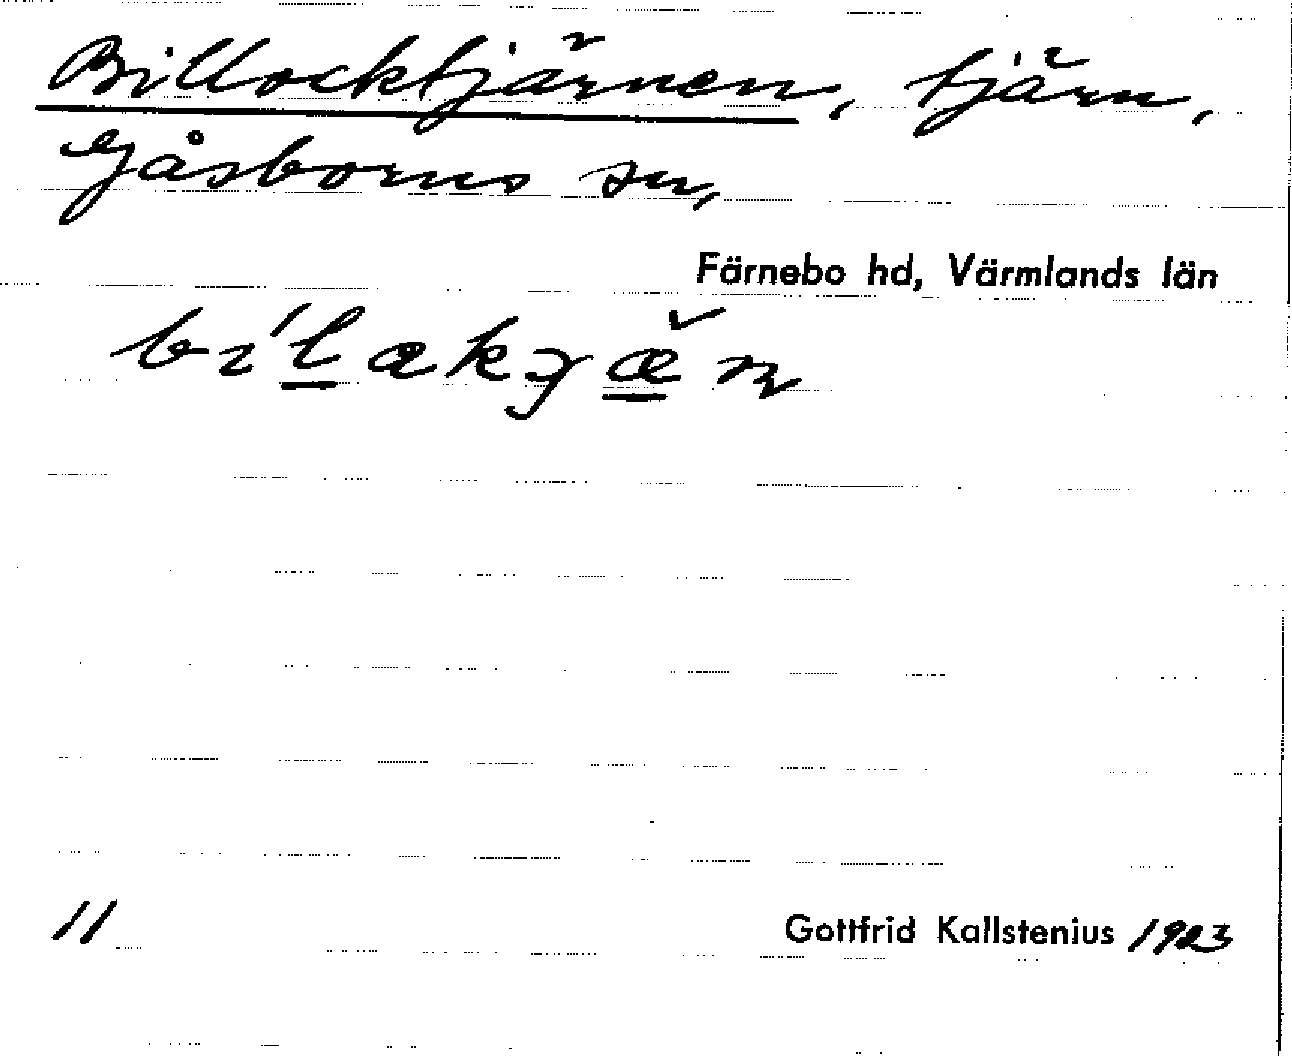 Billocktjärnen, tjärn,
Gåsborns sn,
Färnebo hd, Värmlands län
11
Gottfrid Kallstenius 1923